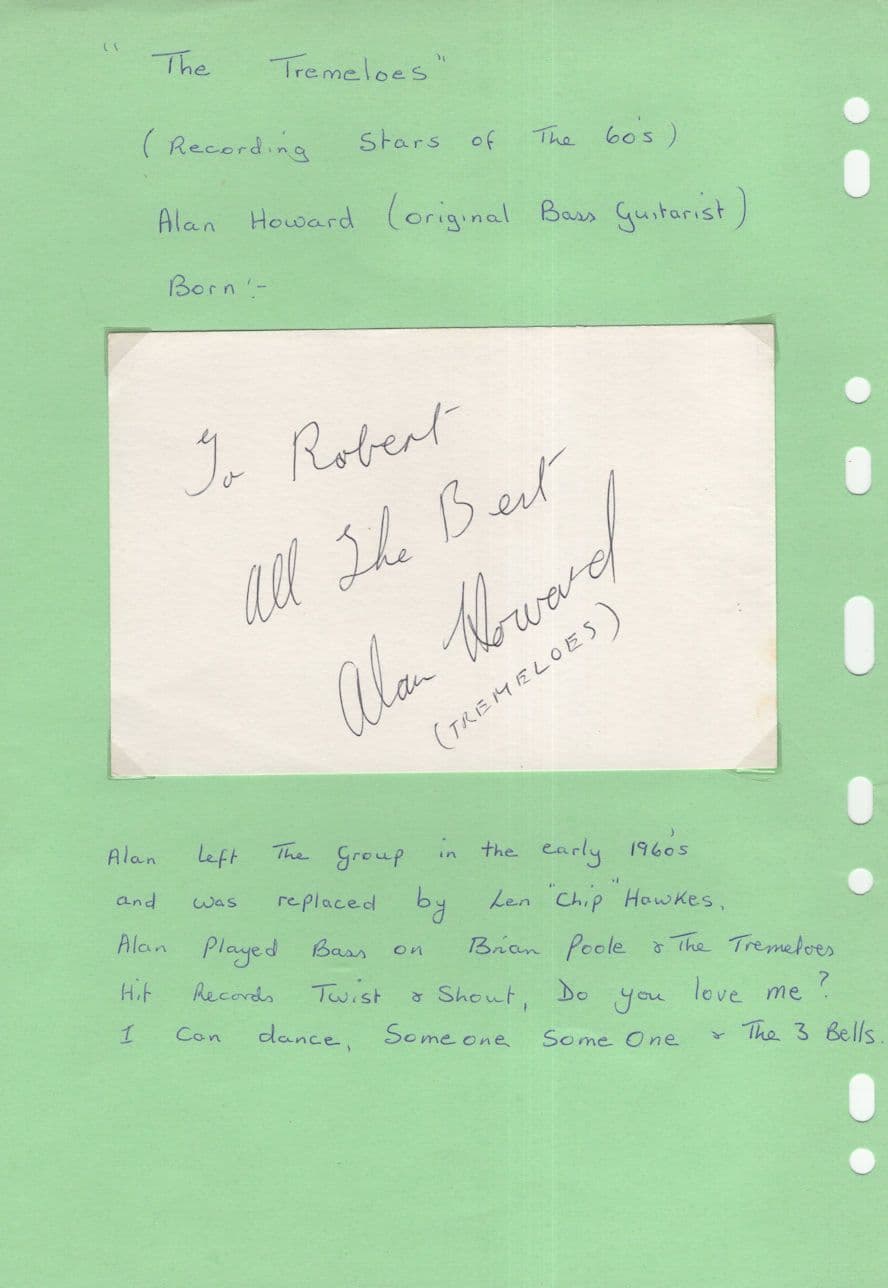 "The Tremeloes"
(Recording Stars of The 60's)
Alan Howard (original Bass Guitarist)
Born :-
To Robert
All The Best
Alan Howard
(TREMELOES)
Alan Left The Group in the early 1960's
and was replaced by Len "Chip" Hawkes.
Alan Played Bass on Brian Poole & The Tremeloes
Hit Records Twist & Shout, Do you love me?
I Can dance, Someone Some One & The 3 Bells.